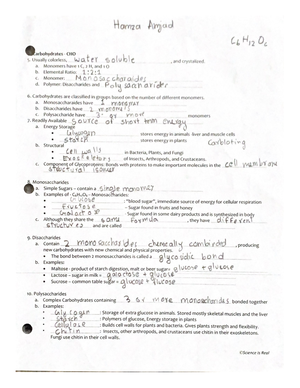 Hamza Amjad
C6H12O6
Carbohydrates - CHO
5. Usually colorless, water soluble, and crystalized.
a. Monomers have C, H, and O
b. Elemental Ratio: 1:2:1
c. Monomer: Monosaccharides
d. Polymer: Disaccharides and Polysaccharides
6. Carbohydrates are classified in groups based on the number of different monomers.
a. Monosaccharides have 1 monomer
b. Disaccharides have 2 monomers
c. Polysaccharide have 3 or more monomers
7. Readily Available source of short term energy
a. Energy Storage
Glycogen stores energy in animals: liver and muscle cells
starch stores energy in plants
b. Structural
Cell walls in Bacteria, Plants, and Fungi
of Insects, Arthropods, and Crustaceans.
c. Component of Glycoproteins: Bonds with proteins to make important molecules in the cell membrane
structural isomer
8. Monosaccharides
a. Simple Sugars – contain a single monomer
b. Examples of - C6H12O6 - Monosaccharides:
Glucose - "blood sugar", immediate source of energy for cellular respiration
Fructose - Sugar found in fruits and honey
Galactose - Sugar found in some dairy products and is synthesized in body
c. Although they share the same formula, they have different
structures and are called
9. Disaccharides
a. Contain 2 monosaccharides chemically combined, producing
new carbohydrates with new chemical and physical properties.
b. The bond between 2 monosaccharides is called a glycosidic bond
c. Examples:
Maltose - product of starch digestion, malt or beer sugar: glucose + glucose
Lactose - sugar in milk = galactose + glucose
Sucrose - common table sugar = glucose + glucose
10. Polysaccharides
a. Complex Carbohydrates containing 3 or more monosaccharides bonded together
b. Examples:
Glycogen: Storage of extra glucose in animals. Stored mostly skeletal muscles and the liver
Starch: Polymers of glucose, Energy storage in plants
Cellulose: Builds cell walls for plants and bacteria. Gives plants strength and flexibility.
Chitin: Insects, other arthropods, and crustaceans use chitin in their exoskeletons.
Fungi use chitin in their cell walls.
©Science Is Real